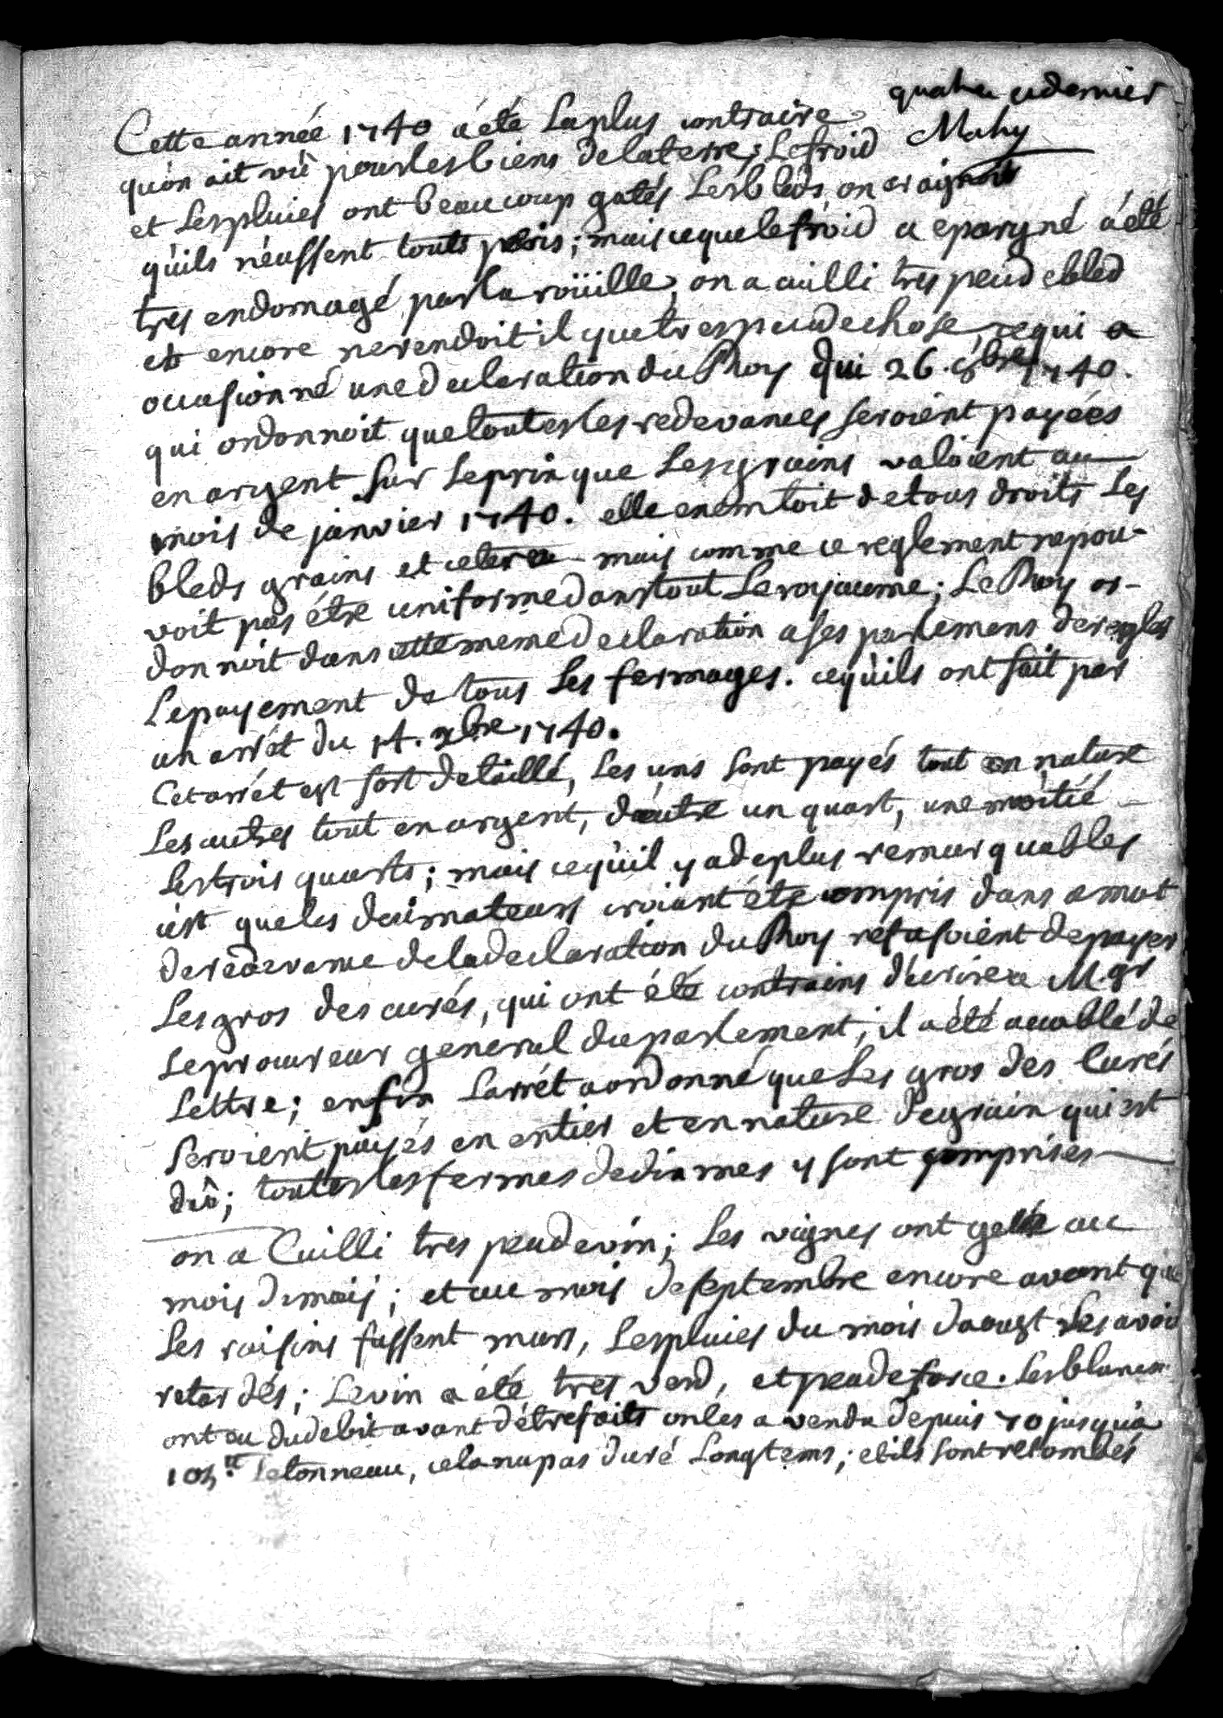 quatre et dernier
Mahy
Cette année 1740 a été la plus contraire
qu'on ait vû pour les biens de la terre, le froid
et les pluies ont beaucoup gatés les bleds, on craignoit
qu'ils n'eussent touts péris; mais ce que le froid a epargné a été
tres endomagé par la roüille, on a cuilli tres peu de bled
et encore ne rendoit il que tres peu de chose, ce qui a
occasionné une declaration du Roy du 26. 8bre 1740.
qui ordonnoit que toutes les redevances seroient payées
en argent sur le prix que les grains valoient au
mois de janvier 1740. elle exemtoit de tous droits les
bleds grains et cetera mais comme ce reglement ne pou-
voit pas étre uniforme dans tout le royaume; Le Roy or-
donnoit dans cette meme declaration a ses parlemens de regler
le payement de tous les fermages. ce qu'ils ont fait par
un arrét du 14. xbre 1740.
Cet arrét est fort detaillé, les uns sont payés tout en nature
les autres tout en argent, d'autre un quart, une moitié
les trois quarts; mais ce qu'il y a de plus remarquables
c'est que les decimateurs croiant éte compris dans ce mot
de redevance de la declaration du Roy refusoient de payer
les gros des curés, qui ont été contrains d'ecrire a M.gr
le procureur general du parlement; il a été accablé de
lettre; enfin l'arrét a ordonné que les gros des Curés
seroient payés en entier et en nature de grain qui est
dû; toutes les fermes de dixmes y sont comprises
on a Cuilli tres peu de vin; les vignes ont gelée au
mois de mai; et au mois de septembre encore avant que
les raisins fussent murs, les pluies du mois d'aougt les avoi
retardés; Le vin a été tres verd, et peu de force. les blancs
ont eu du debit avant d'étre faits on les a vendu depuis 70 jusqu'a
105.tt le tonneau, cela n'a pas duré longtems; et ils sont retombés